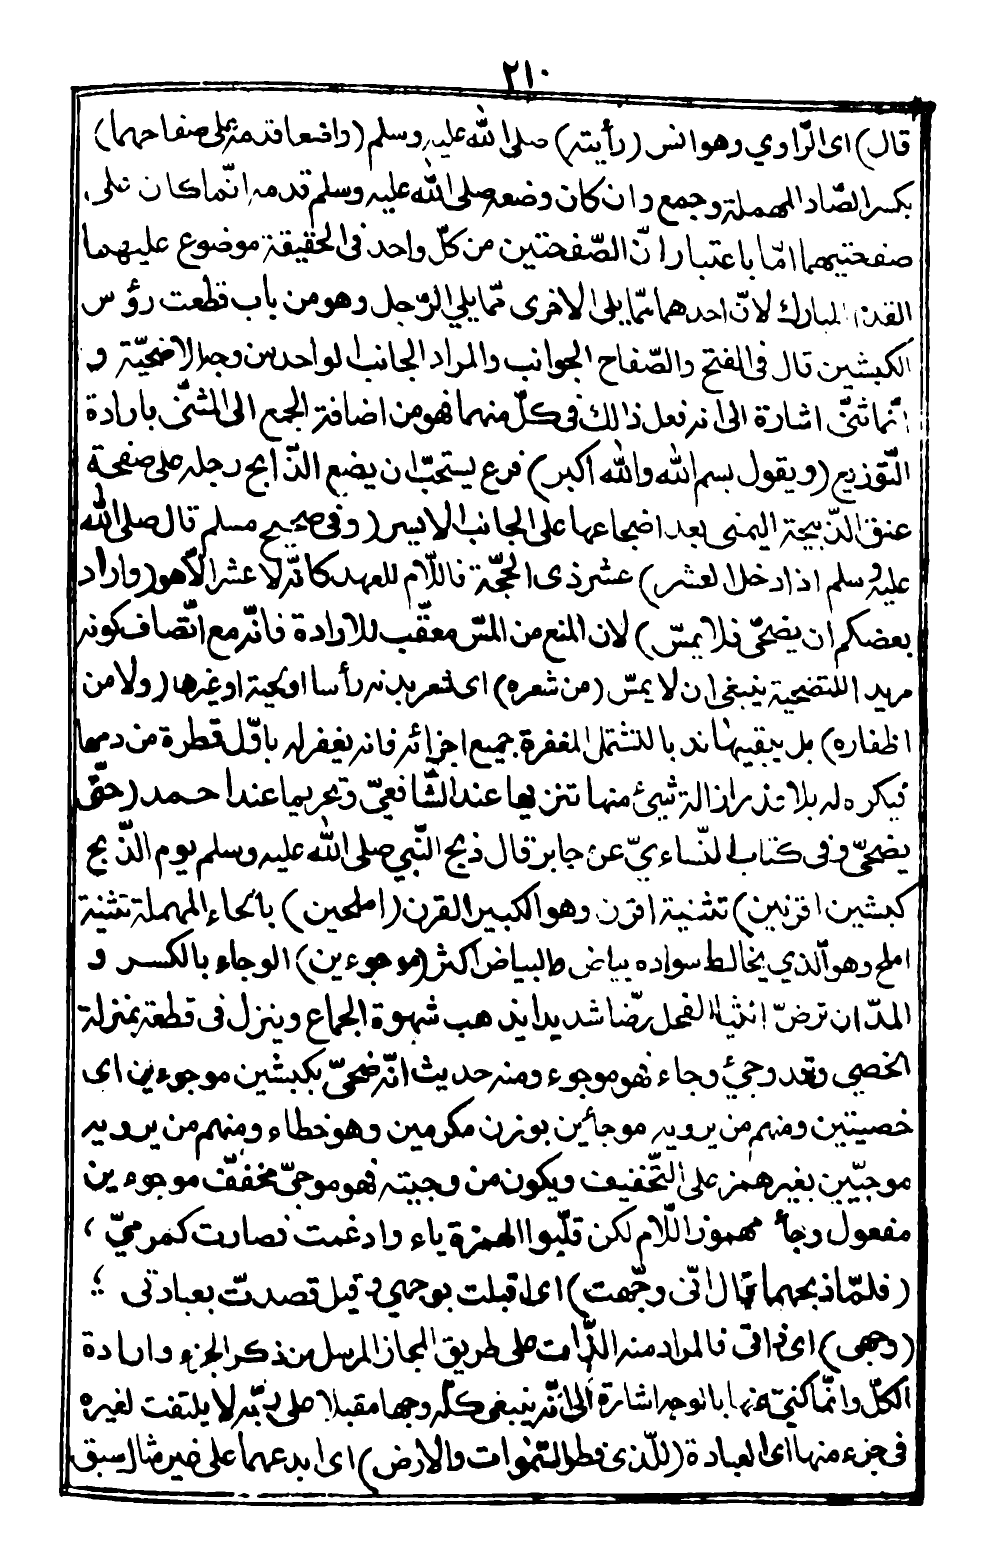 ٢١٠
قال) اى الرّاوي وهو انس (رأيته) صلى الله عليه وسلم (واضعا قدمه على صفاحهما)
بكسر الصّاد المهملة وجمع وان كان وضعه صلى الله عليه وسلم قدمه انّما كان على
صفحتيهما امّا باعتبار انّ الصّفحتين من كلّ واحد فى الحقيقة موضوع عليهما
القدم المبارك لانّ احدهما ممّا يلى الاخرى ممّا يلي الرّجل وهو من باب قطعت رؤس
الكبشين قال فى الفتح والصّفاح الجوانب والمراد الجانب الواحد من وجه الاضحيّة و
انّما ثنّى اشارة الى انه فعل ذلك فى كلّ منهما فهو من اضافة الجمع الى المثنّى بارادة
التّوزيع (ويقول بسم الله والله اكبر) فرع يستحبّ ان يضع الذّابح رجله على صفحة
عنق الذّبيحة اليمنى بعد اضجاعها على الجانب الايسر (وفى صحيح مسلم قال صلى الله
عليه وسلم اذا دخل العشر) عشر ذى الحجّة فاللّام للعهد كانّه لا عشر الّا هو (واراد
بعضكم ان يضحّى فلا يمسّ) لان المنع من المسّ معقّب للارادة فانّه مع اتّصاف كونه
مريدا للتضحية ينبغى ان لا يمسّ (من شعره) اى شعر بدنه رأسا او لحية او غيرها (ولا من
اظفاره) بل يبقيها ندبا لتشتمل المغفرة جميع اجزائه فانه يغفر له باوّل قطرة من دمها
فيكره له بلا عذر ازالة شيئ منها تنزيها عند الشّافعيّ وتحريما عند احمد (حتّى
يضحّى وفى كتاب النّساءيّ عن جابر قال ذبح النّبي صلى الله عليه وسلم يوم الذّبح
كبشين اقرنين) تثنية اقرن وهو الكبير القرن (املحين) بالحاء المهملة تثنية
املح وهو الّذي يخالط سواده بياض والبياض اكثر (موجوءين) الوجاء بالكسر و
المدّ ان ترضّ انثيا الفحل رضّا شديدا يذهب شهوة الجماع وينزل فى قطعه بمنزلة
الخصي وقد وجئ وجاء فهو موجوء ومنه حديث انّه ضحّى بكبشين موجوءين اى
خصيتين ومنهم من يرويه موجأين بوزن مكرمين وهو خطاء ومنهم من يرويه
موجيّين بغير همز على التّخفيف ويكون من وجيته فهو موجيّ مخفّف موجوءين
مفعول وجأ مهموز اللّام لكن قلّبوا الهمزة ياء وادغمت فصارت كمرميّ ،
(فلمّا ذبحهما قال انّى وجّهت) اى اقبلت بوجهي وقيل قصدتّ بعبادتى ؛
(وجهى) اى ذاتى فالمراد منه الذّات على طريق المجاز المرسل من ذكر الجزء وارادة
الكلّ وانّما كنيّ عنها بالوجه اشارة الى انّه ينبغى كلّه وجها مقبلا على ربّه لا يلتفت لغيره
فى جزء منها اى العبادة (للّذى فطر السّموات والارض) اى ابدعهما على غير مثال سبق